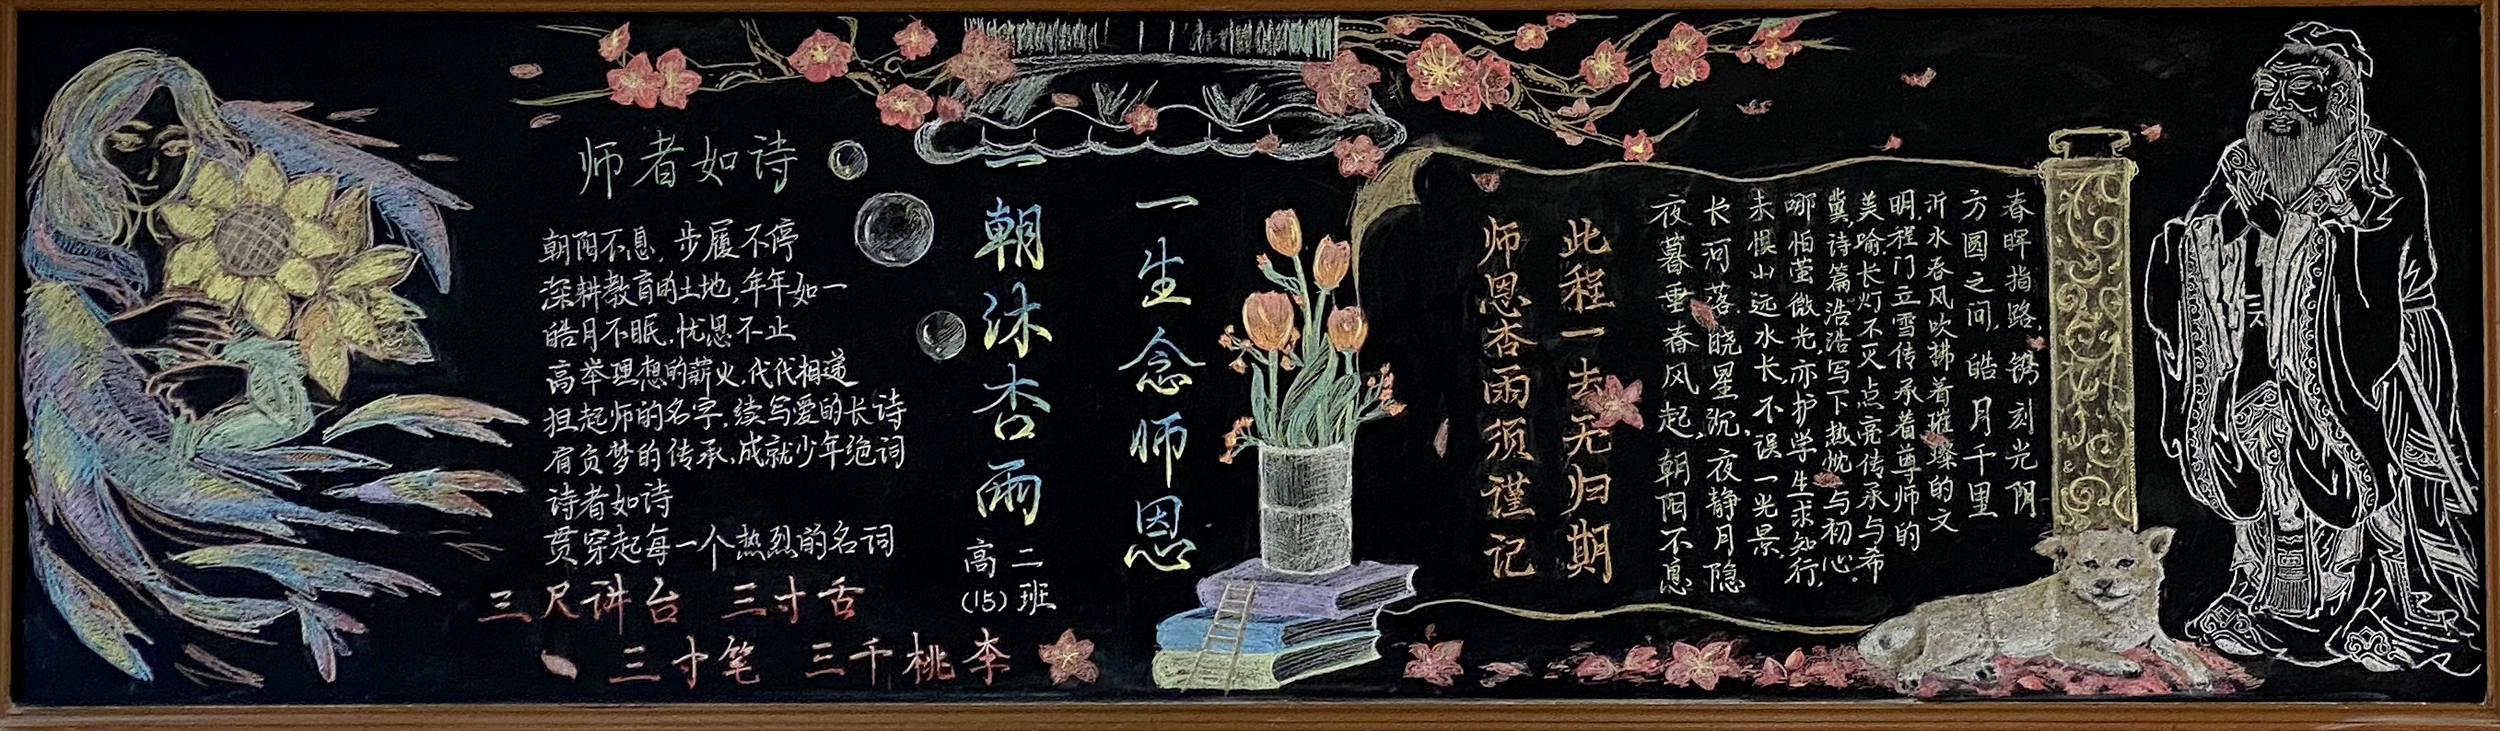 师者如诗
朝阳不息，步履不停
深耕教育的土地，年年如一
皓月不眠，忧思不止
高举理想的薪火，代代相递
担起师的名字，续写爱的长诗
肩负梦的传承，成就少年绝词
诗者如诗
贯穿起每一个热烈的名词
三尺讲台 三寸舌
三寸笔 三千桃李
一朝沐杏雨
一生念师恩
高二
(15)班
此程一去无归期
师恩杏雨须谨记
春晖指路，镌刻光阴
方圆之间，皓月千里
沂水春风吹拂着璀璨的文
明，程门立雪传承着尊师的
美喻，长灯不灭点亮传承与希
冀，诗篇浩浩写下热忱与初心。
哪怕萤微光，亦护学生求知行，
未惧山远水长，不误一光景，
长河落，晓星沉，夜静月隐
夜暮垂春风起，朝阳不息